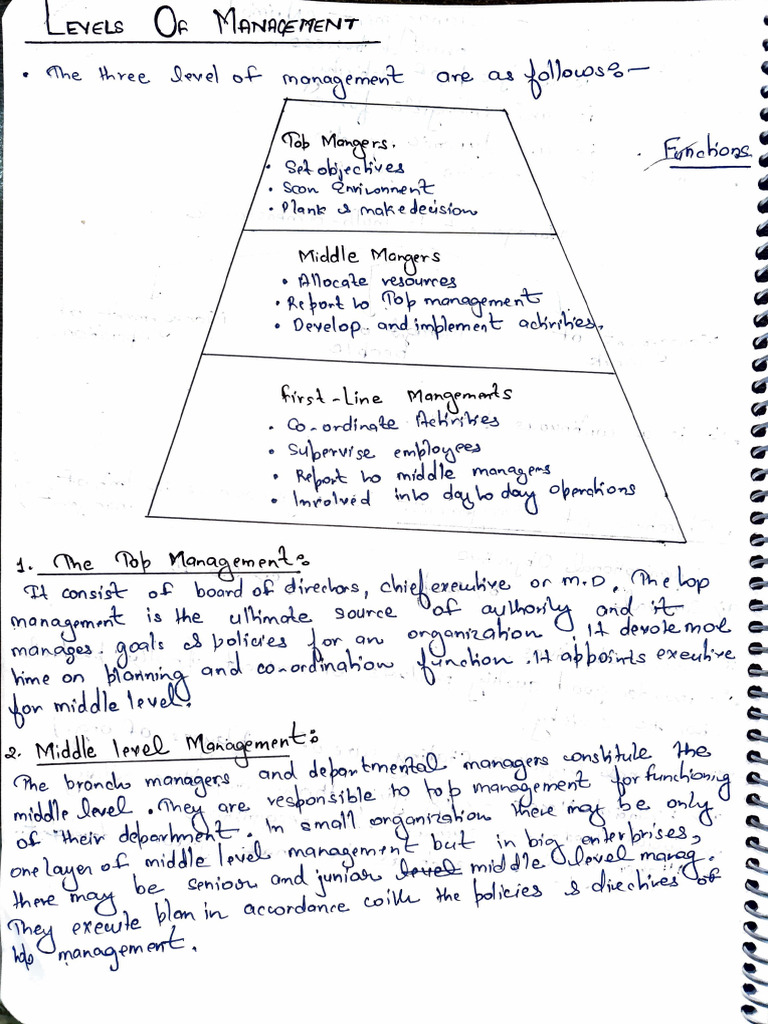 LEVELS OF MANAGEMENT
• The three level of management are as follows:-
Functions
Top Mangers.
• Set objectives
• Scan Environment
• Plank & make decision
Middle Mangers
• Allocate resources
• Report to Top management
• Develop and implement activities.
First-Line Mangements
• Co-ordinate Activities
• Supervise employees
• Report to middle managers
• Involved into day to day operations
1. The Top Management:
It consist of board of directors, chief executive or M.D. The top
management is the ultimate source of authority and it
manages goals & policies for an organization It devote mor
time on planning and co-ordination function. It appoints exeutive
for middle level.
2. Middle level Management:
The branch managers and departmental managers constitute the
middle level. They are responsible to top management for functioning
of their department. In small organization there may be only
one layer of middle level management but in big enterprises,
there may be senior and junior level middle level manag.
They execute plan in accordance with the policies & directives of
top management.